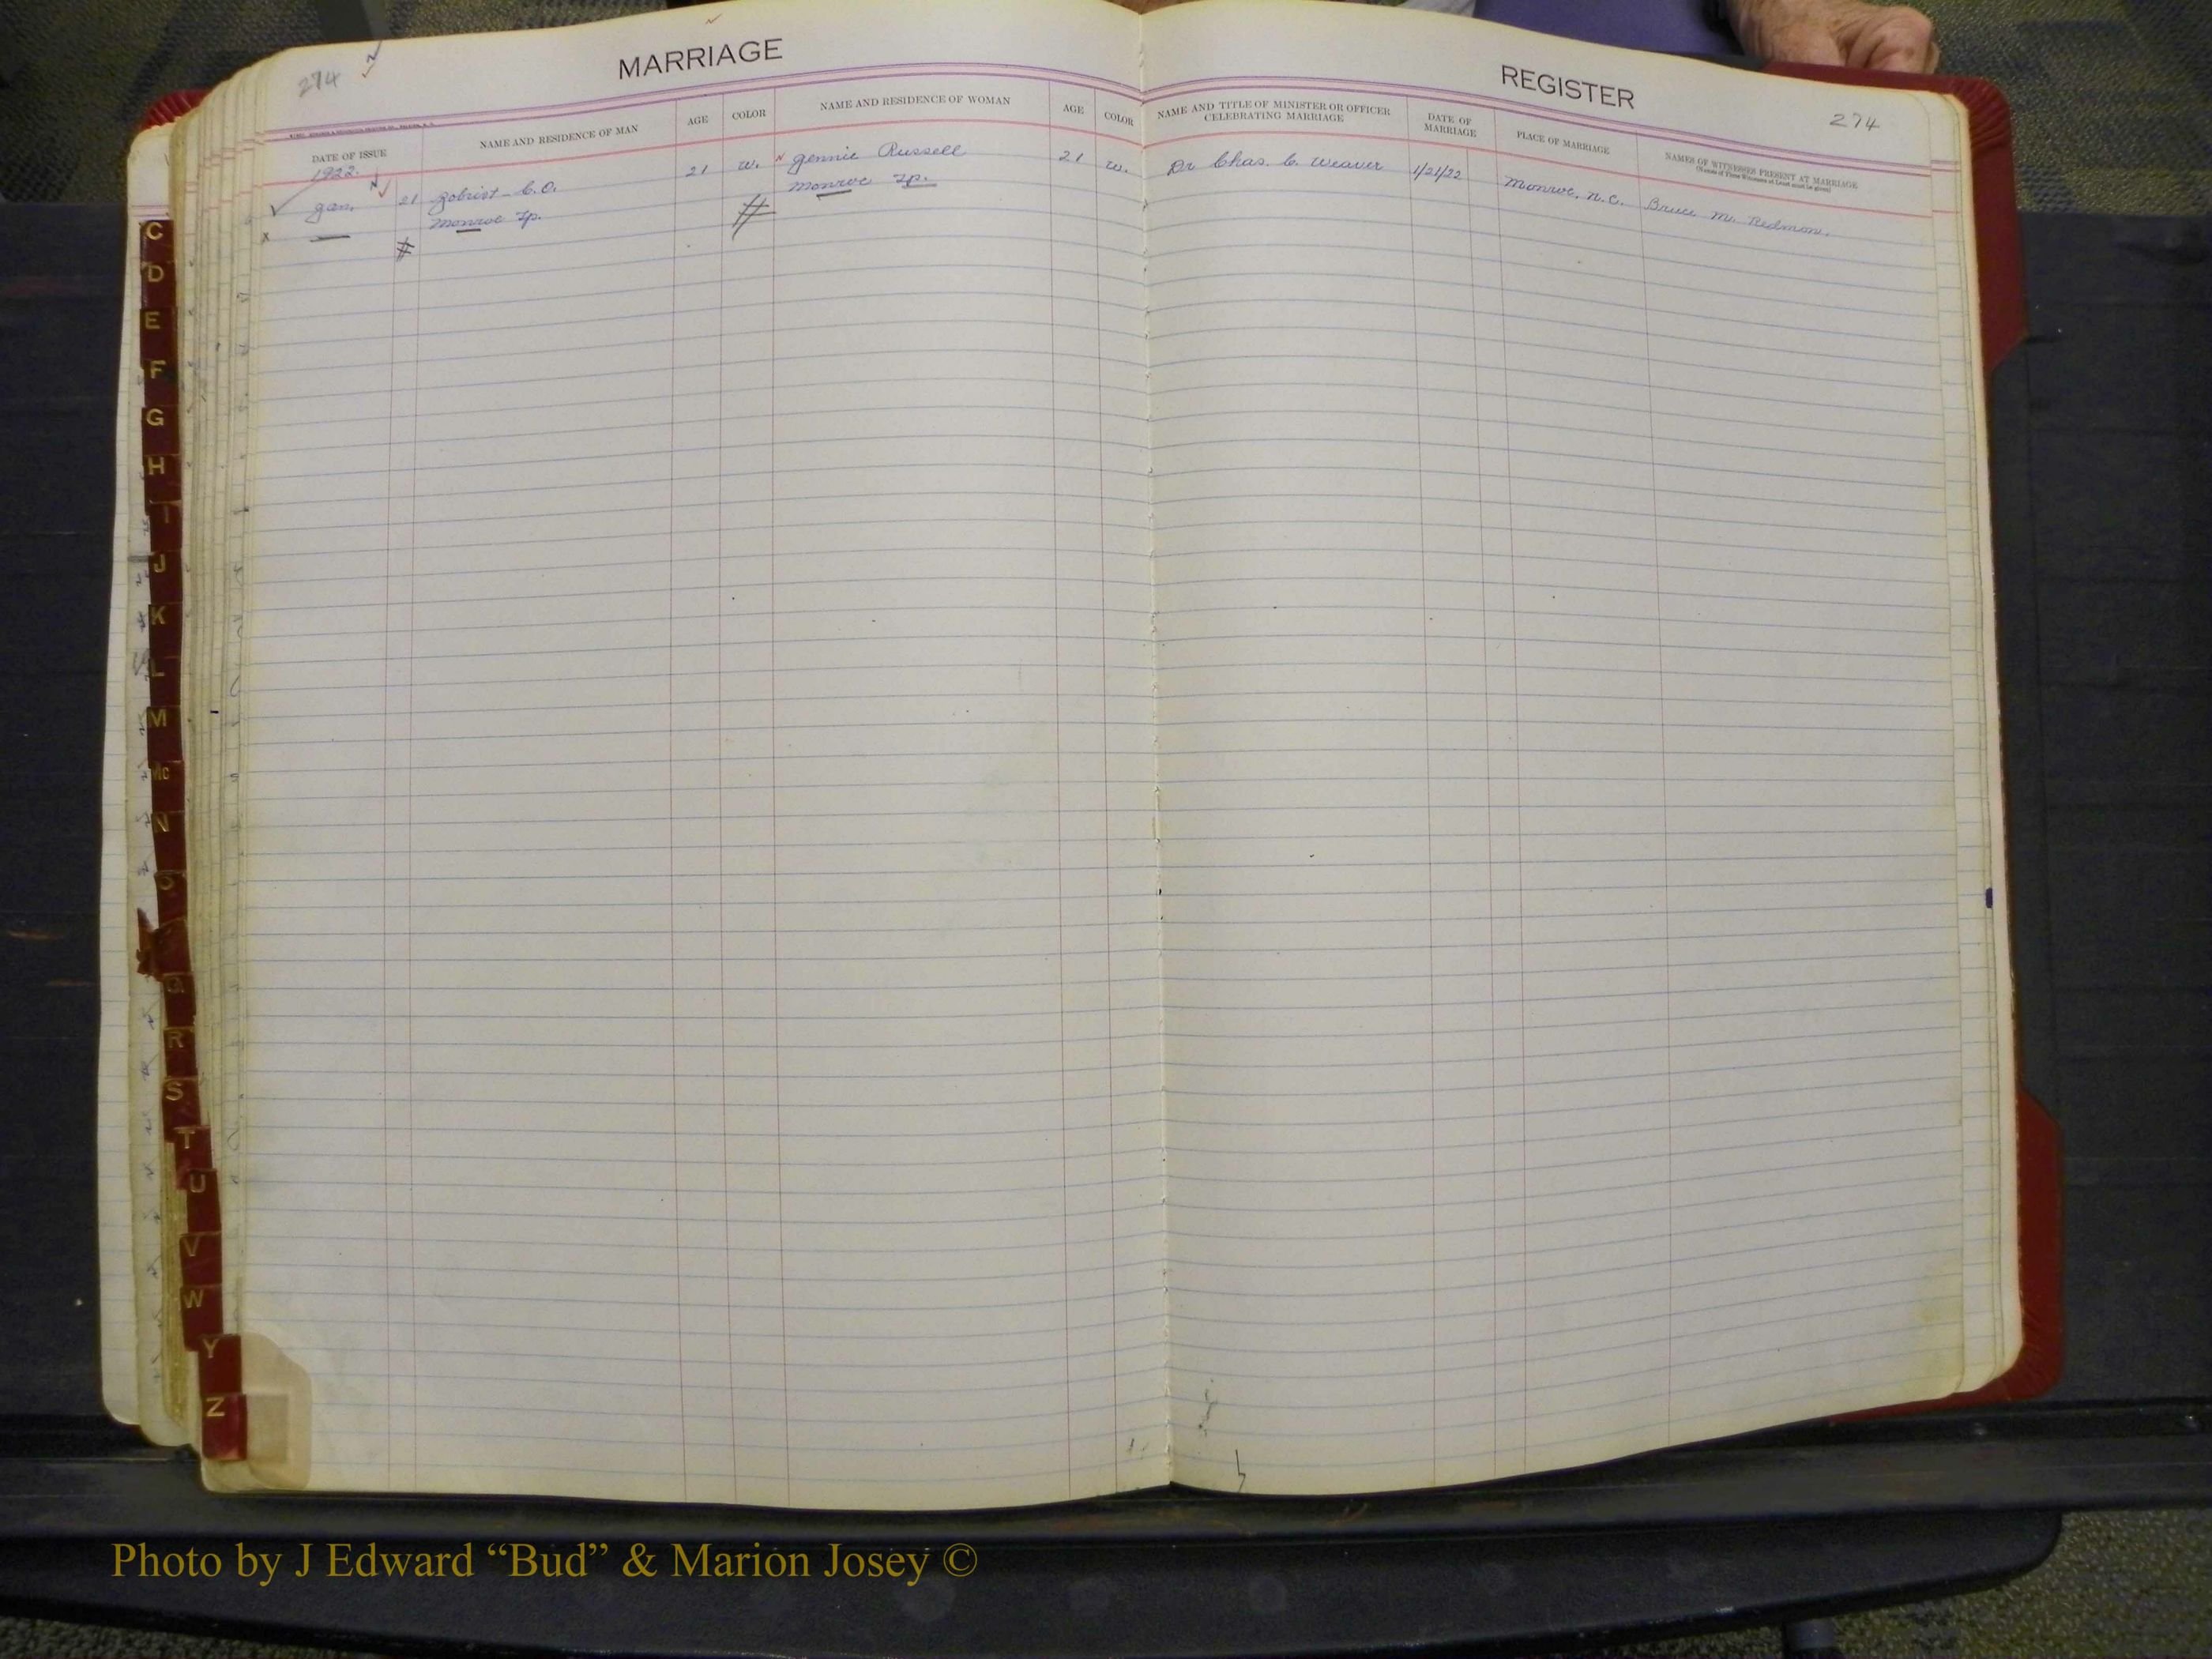 274
MARRIAGE
DATE OF ISSUE
NAME AND RESIDENCE OF MAN
AGE
COLOR
NAME AND RESIDENCE OF WOMAN
AGE
COLOR
1922.
Jan. 21 Zobrist - C.O. 21 W. Jennie Russell 21 W.
Monroe Tp. Monroe Tp.
REGISTER
274
NAME AND TITLE OF MINISTER OR OFFICER
CELEBRATING MARRIAGE
DATE OF
MARRIAGE
PLACE OF MARRIAGE
NAMES OF WITNESSES PRESENT AT MARRIAGE
(Names of Three Witnesses at Least must be given)
Dr Chas. C. Weaver 1/21/22 Monroe, N.C. Bruce M. Redmon.
C
D
E
F
G
H
I
J
K
L
M
Mc
N
O
Q
R
S
T
U
V
W
Y
Z
Photo by J Edward “Bud” & Marion Josey ©